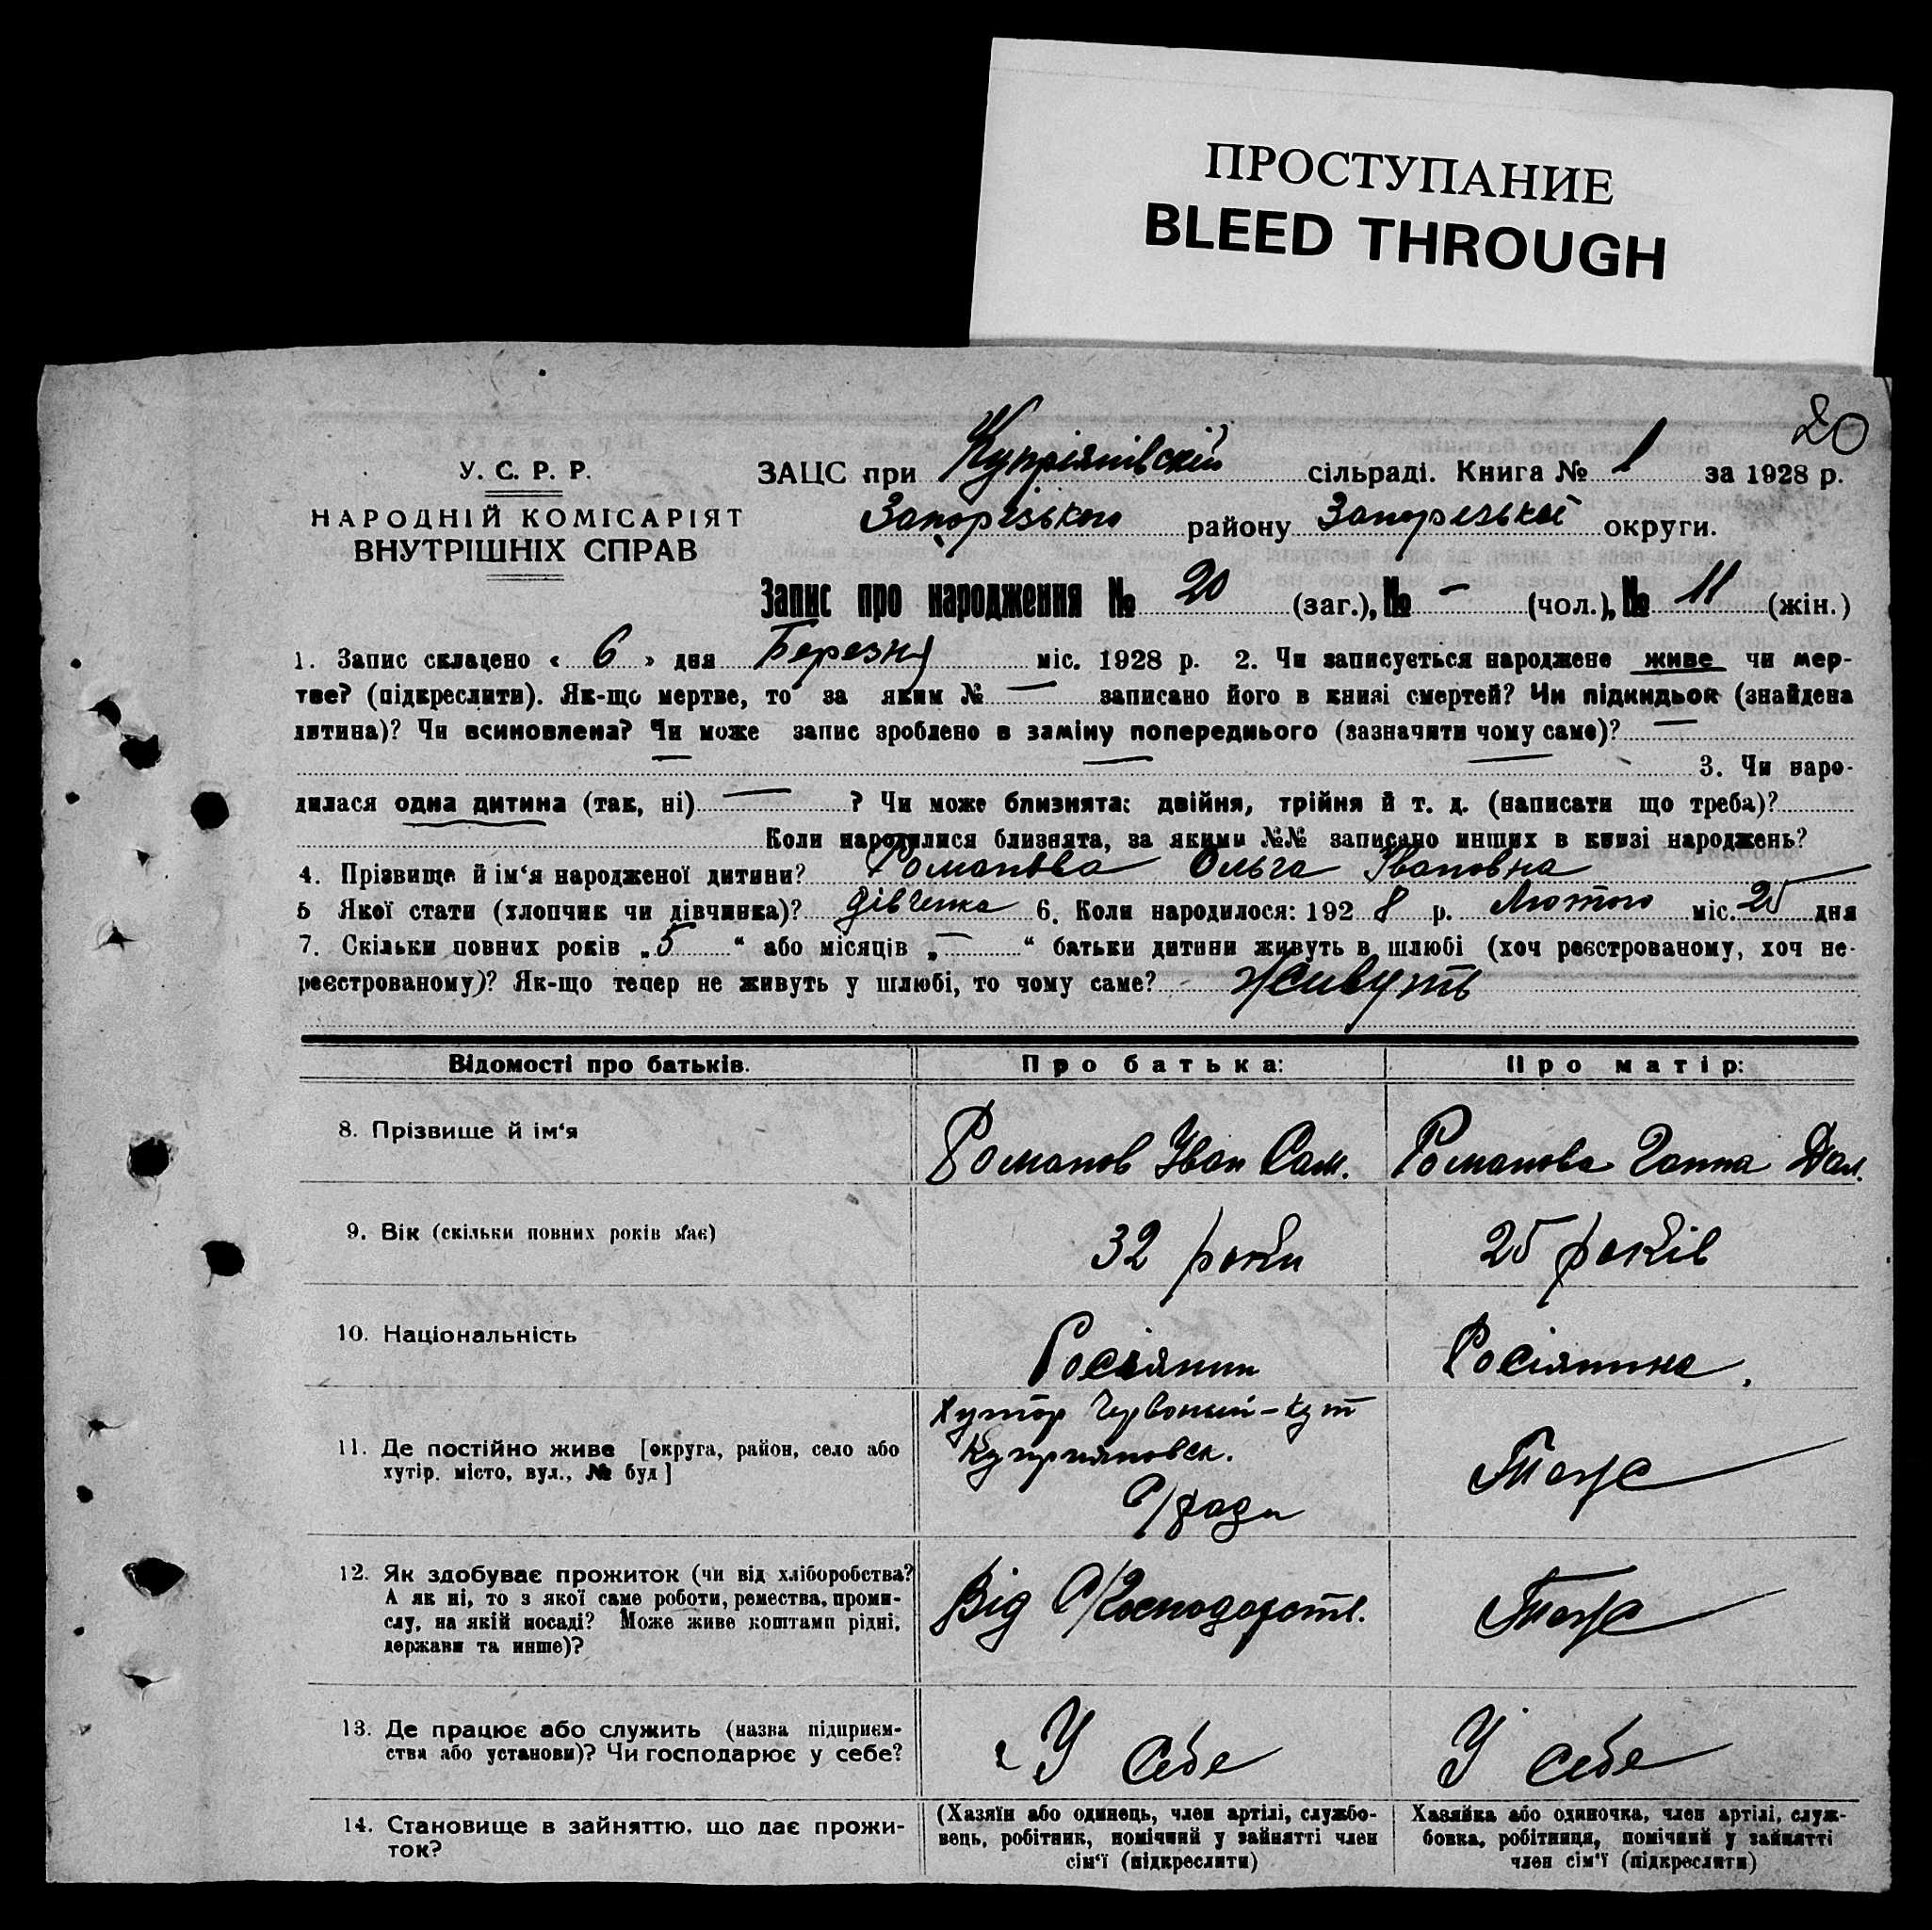 ПРОСТУПАНИЕ
BLEED THROUGH
20
У. С. Р. Р.
НАРОДНІЙ КОМІСАРІЯТ
ВНУТРІШНІХ СПРАВ
ЗАЦС при Купріянівскій сільраді. Книга № 1 за 1928 р.
Запорізького району Запорізької округи.
Запис про народження № 20 (заг.), № - (чол.), № 11 (жін.)
1. Запис складено « 6 » дня Березня міс. 1928 р. 2. Чи записується народжене живе чи мер-
тве? (підкреслити). Як-що мертве, то за яким № — записано його в книзі смертей? Чи підкидьок (знайдена
дитина)? Чи всиновлена? Чи може запис зроблено в заміну попереднього (зазначити чому саме)? —
— — — 3. Чи наро-
дилася одна дитина (так, ні) — ? Чи може близнята: двійня, трійня й т. д. (написати що треба)?
Коли народилися близнята, за якими №№ записано инших в книзі народжень?
4. Прізвище й ім‘я народженої дитини? Романова Ольга Івановна
5 Якої стати (хлопчик чи дівчинка)? дівченка 6. Коли народилося: 192 8 р. Лютого міс. 25 дня
7. Скільки повних років „ 5 “ або місяців „ — “ батьки дитини живуть в шлюбі (хоч реєстрованому, хоч не-
реєстрованому)? Як-що тепер не живуть у шлюбі, то чому саме? Живуть
Відомості про батьків. Про батька: Про матір:
8. Прізвище й ім‘я Романов Іван Сам. Романова Ганна Дан.
9. Вік (скільки повних років має) 32 роки 25 років
10. Національність Росіянин Росіянина.
11. Де постійно живе [округа, район, село або
хутір. місто, вул., № буд]
Хутор Червоний-Кут
Куприяновск.
С/ради
Тоже
12. Як здобуває прожиток (чи від хліборобства?
А як ні, то з якої саме роботи, ремества, проми-
слу, на якій посаді? Може живе коштами рідні,
держави та инше)?
Від С/Господарств.
Тоже
13. Де працює або служить (назва підприєм-
ства або установи)? Чи господарює у себе?
У себе
У себе
14. Становище в зайняттю, що дає прожи-
ток?
(Хазяїн або одинець, член артілі, службо-
вець, робітник, помічний у зайнятті член
сім‘ї (підкреслити)
Хазяйка або одиночка, член артілі, служ-
бовка, робітниця, помічний у зайнятті
член сім‘ї (підкреслити)